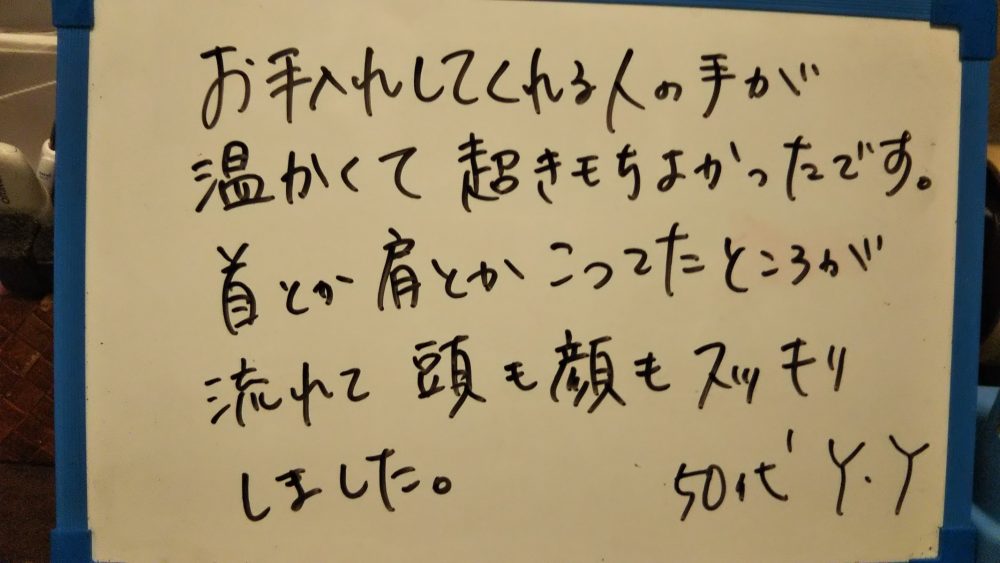 お手入れしてくれる人の手が
温かくて 超きもちよかったです。
首とか肩とか こってたところが
流れて 頭も顔も スッキリ
しました。 50代 Y.Y